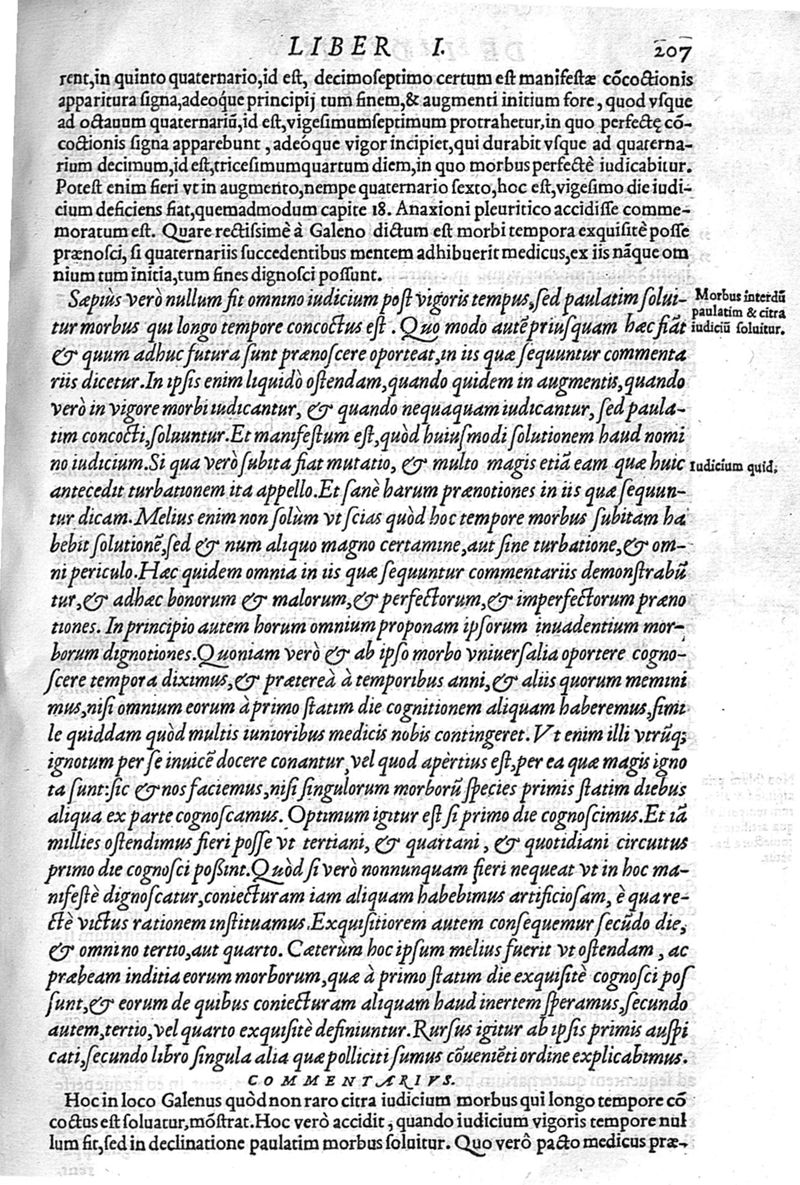 LIBER I. 207
rent, in quinto quaternario, id est, decimoseptimo certum est manifestæ cõcoctionis
apparitura signa, adeoque principij tum finem, & augmenti initium fore, quod vsque
ad octauum quaternariũ, id est, vigesimumseptimum protrahetur, in quo perfectę cõ-
coctionis signa apparebunt, adeoque vigor incipiet, qui durabit vsque ad quaterna-
rium decimum, id est, tricesimumquartum diem, in quo morbus perfectè iudicabitur.
Potest enim fieri vt in augmento, nempe quaternario sexto, hoc est, vigesimo die iudi-
cium deficiens fiat, quemadmodum capite 18. Anaxioni pleuritico accidisse comme-
moratum est. Quare rectissimè à Galeno dictum est morbi tempora exquisitè posse
prænosci, si quaternariis succedentibus mentem adhibuerit medicus, ex iis nãque om
nium tum initia, tum fines dignosci possunt.
Sæpiùs verò nullum fit omnino iudicium post vigoris tempus, sed paulatim solui-
tur morbus qui longo tempore concoctus est. Quo modo autẽ priusquam hæc fiãt
& quum adhuc futura sunt prænoscere oporteat, in iis quæ sequuntur commenta
riis dicetur. In ipsis enim liquidò ostendam, quando quidem in augmentis, quando
verò in vigore morbi iudicantur, & quando nequaquam iudicantur, sed paula-
tim concocti, soluuntur. Et manifestum est, quòd huiusmodi solutionem haud nomi
no iudicium. Si qua verò subita fiat mutatio, & multo magis etiã eam quæ huic
antecedit turbationem ita appello. Et sanè harum prænotiones in iis quæ sequun-
tur dicam. Melius enim non solùm vt scias quòd hoc tempore morbus subitam ha
bebit solutionẽ, sed & num aliquo magno certamine, aut sine turbatione, & om-
ni periculo. Hæc quidem omnia in iis quæ sequuntur commentariis demonstrabũ
tur, & adhæc bonorum & malorum, & perfectorum, & imperfectorum præno
tiones. In principio autem horum omnium proponam ipsorum inuadentium mor-
borum dignotiones. Quoniam verò & ab ipso morbo vniuersalia oportere cogno-
scere tempora diximus, & prætereà à temporibus anni, & aliis quorum memini
mus, nisi omnium eorum à primo statim die cognitionem aliquam haberemus, simi
le quiddam quòd multis iunioribus medicis nobis contingeret. Vt enim illi vtrũq;
ignotum per se inuicẽ docere conantur, vel quod apertius est, per ea quæ magis igno
ta sunt: sic & nos faciemus, nisi singulorum morborũ species primis statim diebus
aliqua ex parte cognoscamus. Optimum igitur est si primo die cognoscimus. Et iã
millies ostendimus fieri posse vt tertiani, & quartani, & quotidiani circuitus
primo die cognosci possint. Quòd si verò nonnunquam fieri nequeat vt in hoc ma-
nifestè dignoscatur, coniecturam iam aliquam habebimus artificiosam, è qua re-
ctè victus rationem instituamus. Exquisitiorem autem consequemur secũdo die,
& omnino tertio, aut quarto. Cæterùm hoc ipsum melius fuerit vt ostendam, ac
præbeam inditia eorum morborum, quæ à primo statim die exquisitè cognosci pos
sunt, & eorum de quibus coniecturam aliquam haud inertem speramus, secundo
autem, tertio, vel quarto exquisitè definiuntur. Rursus igitur ab ipsis primis auspi
cati, secundo libro singula alia quæ polliciti sumus cõueniẽti ordine explicabimus.
COMMENTARIVS.
Hoc in loco Galenus quòd non raro citra iudicium morbus qui longo tempore cõ
coctus est soluatur, mõstrat. Hoc verò accidit, quando iudicium vigoris tempore nul
lum fit, sed in declinatione paulatim morbus soluitur. Quo verò pacto medicus præ-
Morbus interdũ
paulatim & citra
iudiciũ soluitur.
Iudicium quid.